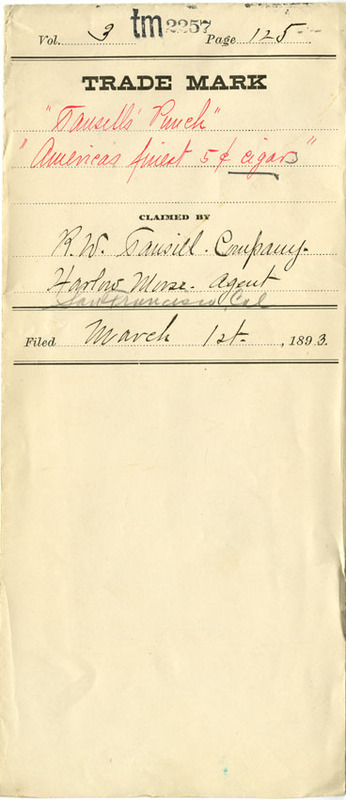 Vol. 3 tm 2257 Page 125
TRADE MARK
"Tansill's Punch"
"America's finest 5¢ cigar"
CLAIMED BY
R.W. Tansill. Company.
Harlow Morse. Agent
San Francisco, Cal
Filed March 1st. , 1893.